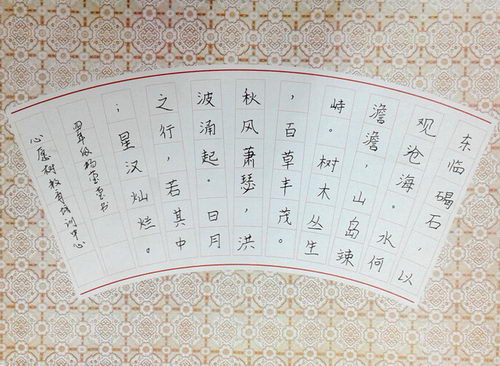 东临碣石，以
观沧海。水何
澹澹，山岛竦
峙。树木丛生
，百草丰茂。
秋风萧瑟，洪
波涌起。日月
之行，若其中
；星汉灿烂。
四年级 书
心愿树教育培训中心